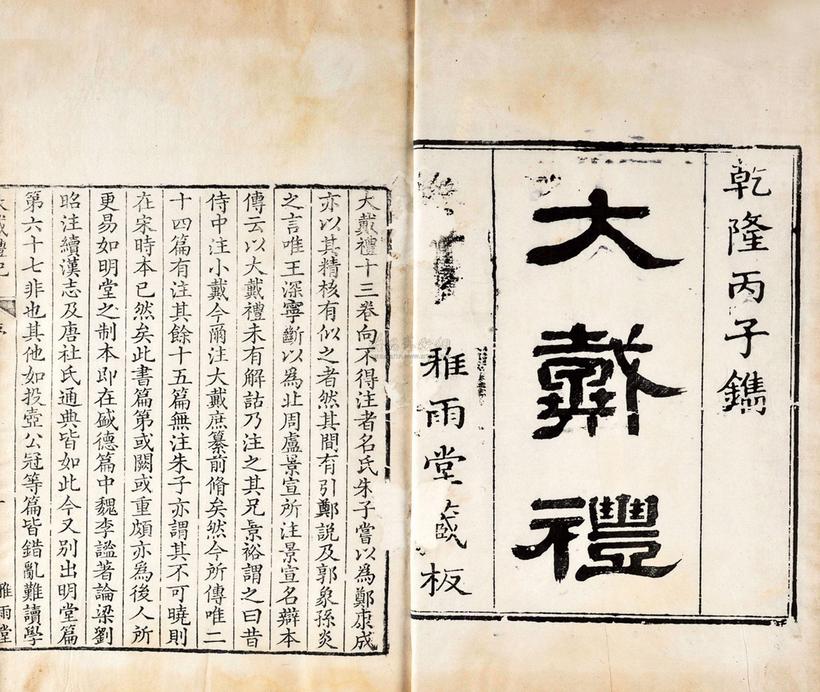 乾隆丙子鐫
大戴禮
雅雨堂藏板
大戴禮十三卷向不得注者名氏朱子嘗以為鄭康成
亦以其精核有似之者然其間有引鄭説及郭象孫炎
之言唯王深寧斷以為北周盧景宣所注景宣名辯本
傳云以大戴禮未有解詁乃注之其兄景裕謂之曰昔
侍中注小戴今爾注大戴庶纂前脩矣然今所傳唯二
十四篇有注其餘十五篇無注朱子亦謂其不可曉則
在宋時本已然矣此書篇第或闕或重頗亦為後人所
更易如明堂之制本即在盛德篇中魏李謐著論梁劉
昭注續漢志及唐杜氏通典皆如此今又别出明堂篇
第六十七非也其他如投壺公冠等篇皆錯亂難讀學
大戴禮記
序
一
雅雨堂